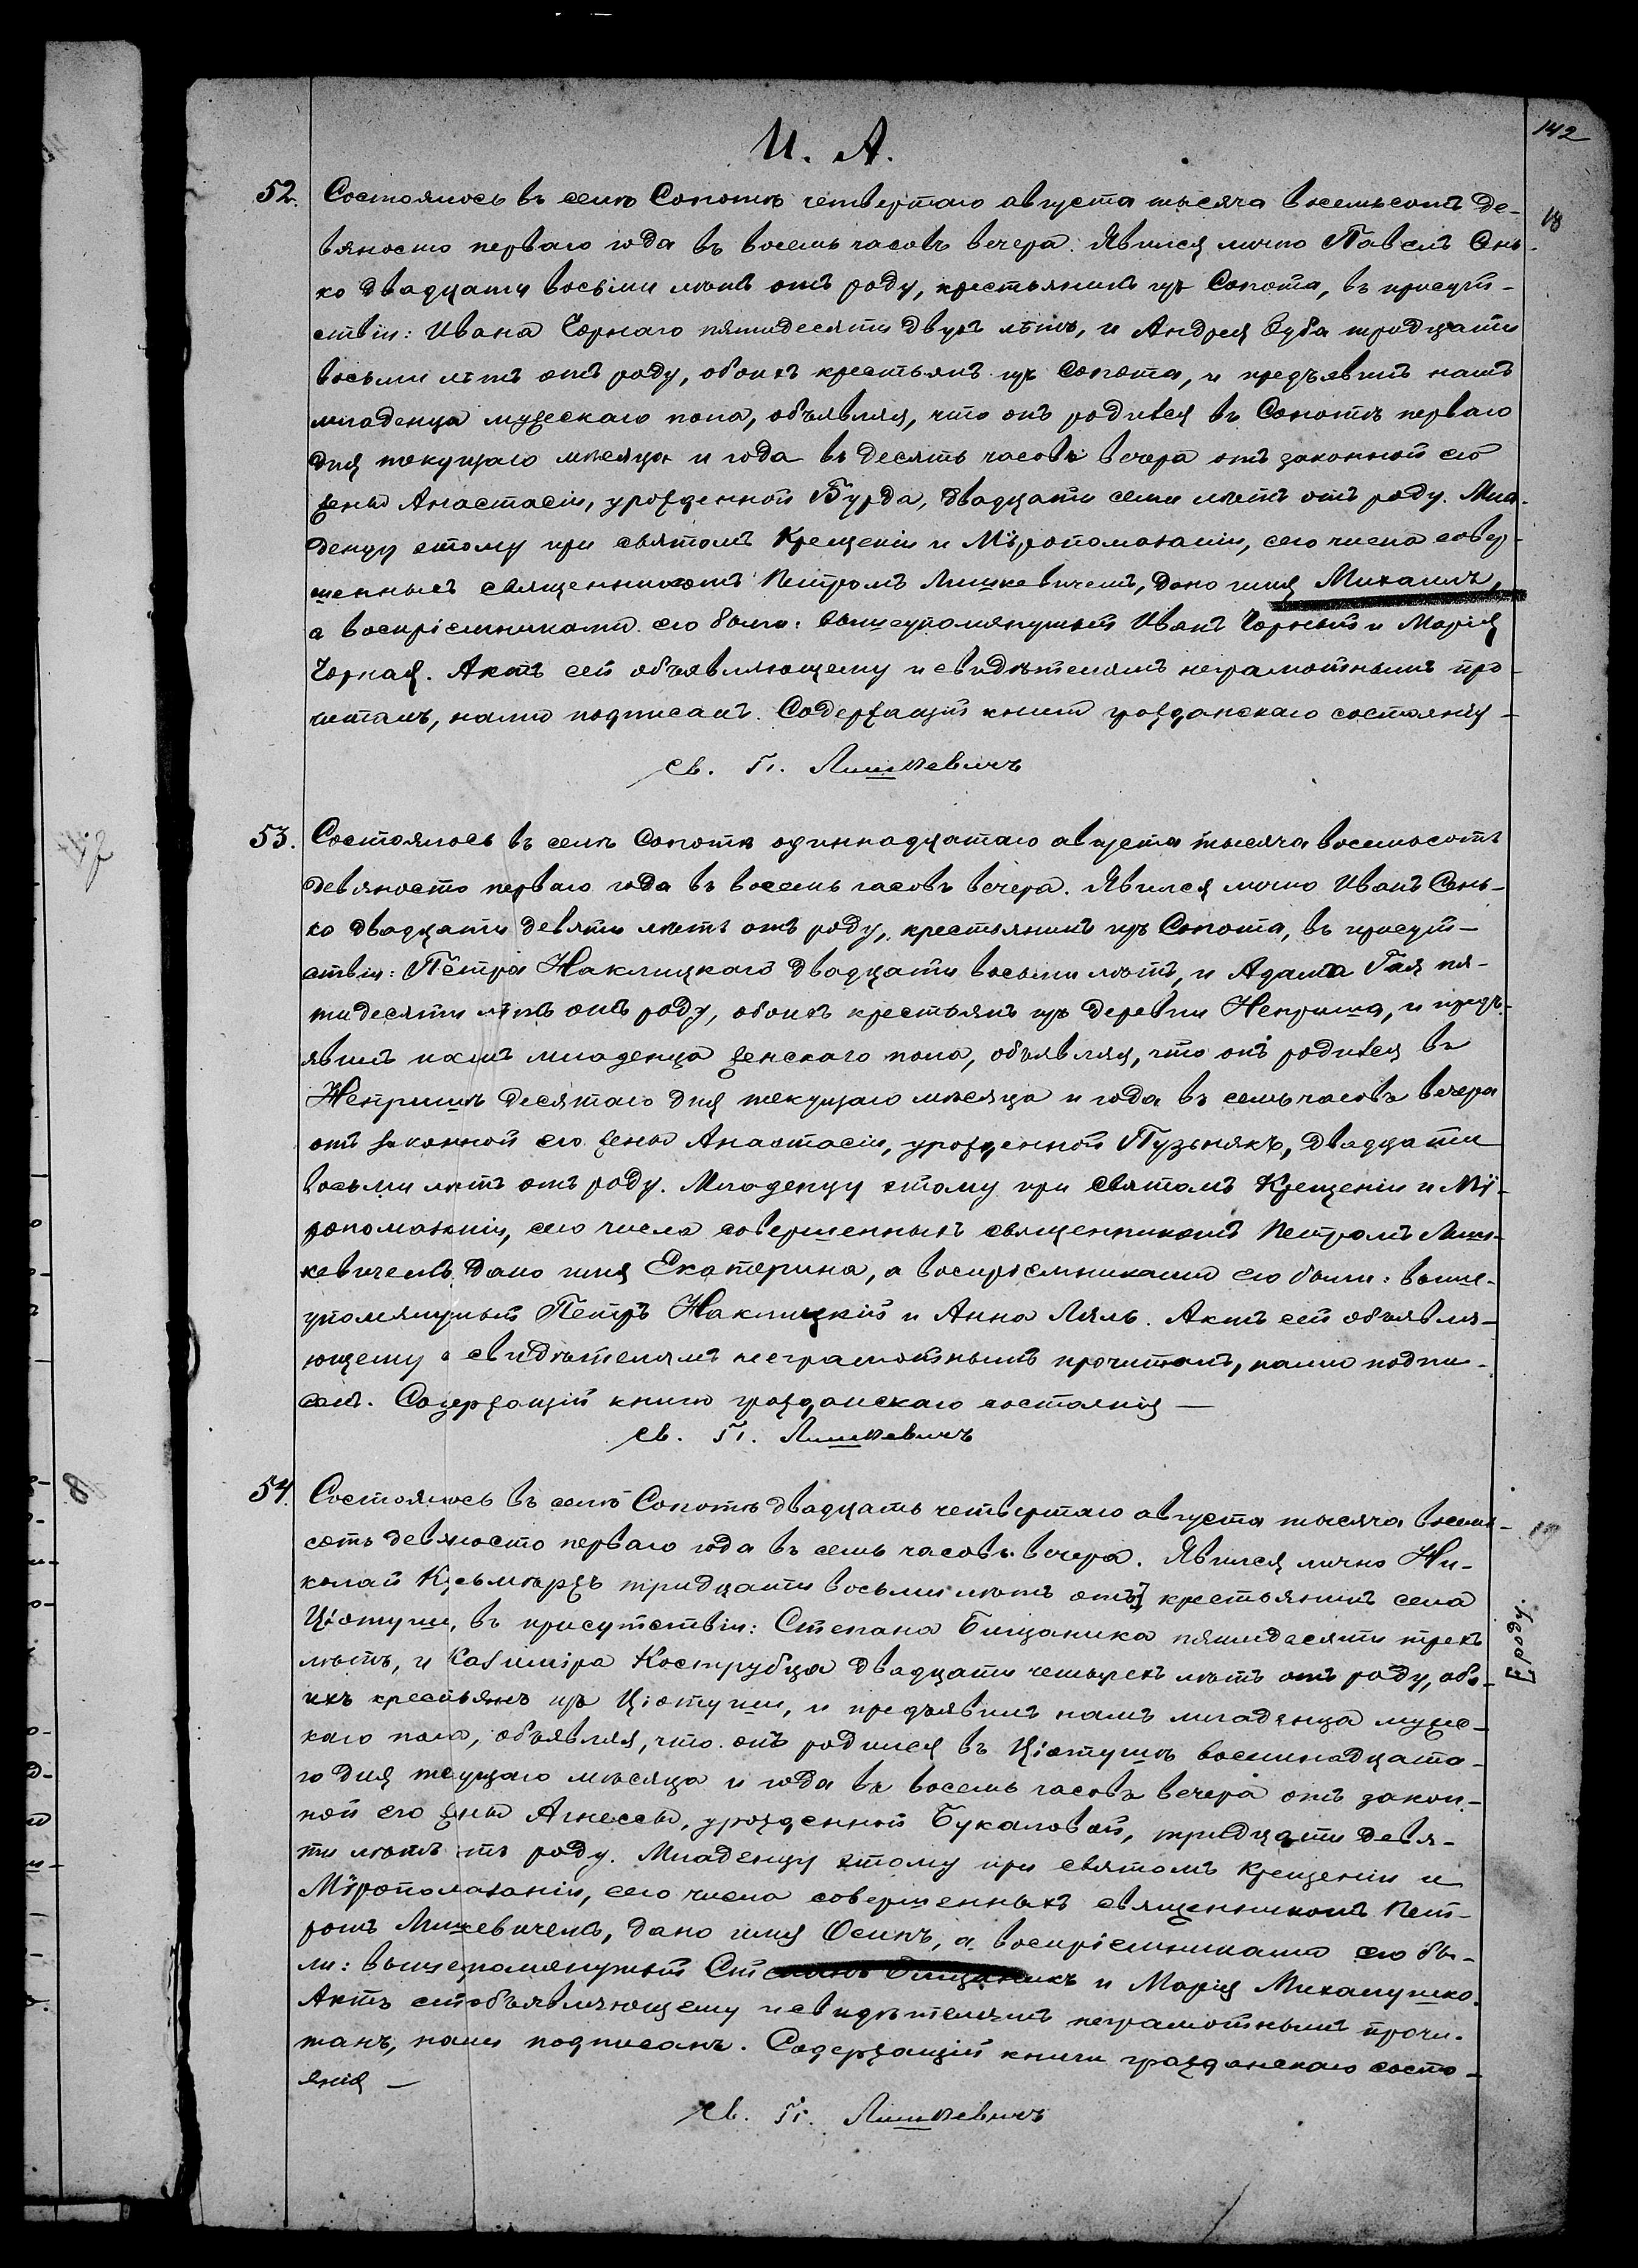 И. А.
142
52. Состоялось въ селѣ Сопотѣ четвертаго августа тысяча восемьсотъ де-
18
вяносто перваго года въ восемь часовъ вечера. Явился лично Павелъ Сень-
ко двадцати восьми лѣтъ отъ роду, крестьянинъ изъ Сопота, въ присут-
ствіи: Ивана Чорнаго пятидесяти двухъ лѣтъ, и Андрея Зуба тридцати
восьми лѣтъ отъ роду, обоихъ крестьянъ изъ Сопота, и предъявилъ намъ
младенца мужескаго пола, объявляя, что онъ родился въ Сопотѣ перваго
дня текущаго мѣсяца и года въ десять часовъ вечера отъ законной его
жены Анастасіи, урожденной Бурда, двадцати семи лѣтъ отъ роду. Мла-
денцу этому при святомъ Крещеніи и Мѵропомазаніи, сего числа совер-
шенныхъ священникомъ Петромъ Лишкевичемъ, дано имя Михаилъ,
а воспріемниками его были: вышеупомянутый Иванъ Чорный и Марія
Чорная. Актъ сей объявляющему и свидѣтелямъ неграмотнымъ про-
читанъ, нами подписанъ. Содержащій книги гражданскаго состоянія –
Св. П. Лишкевичъ
53. Состоялось въ селѣ Сопотѣ одиннадцатаго августа тысяча восемьсотъ
девяносто перваго года въ восемь часовъ вечера. Явился лично Иванъ Сень-
ко двадцати девяти лѣтъ отъ роду, крестьянинъ изъ Сопота, въ присут-
ствіи: Петра Наклицкаго двадцати восьми лѣтъ, и Адама Гая пя-
тидесяти лѣтъ отъ роду, обоихъ крестьянъ изъ деревни Неприша, и предъ-
явилъ намъ младенца женскаго пола, объявляя, что онъ родился въ
Непришѣ десятаго дня текущаго мѣсяца и года въ семь часовъ вечера
отъ законной его жены Анастасіи, урожденной Пузьнякъ, двадцати
восьми лѣтъ отъ роду. Младенцу этому при святомъ Крещеніи и Мѵ-
ропомазаніи, сего числа совершенныхъ священникомъ Петромъ Лиш-
кевичемъ дано имя Екатерина, а воспріемниками его были: выше-
упомянутый Петръ Наклицкій и Анна Ляль. Актъ сей объявля-
ющему и свидѣтелямъ неграмотнымъ прочитанъ, нами подпи-
санъ. Содержащій книги гражданскаго состоянія —
Св. П. Лишкевичъ
54. Состоялось въ селѣ Сопотѣ двадцать четвертаго августа тысяча восемь-
сотъ девяносто перваго года въ семь часовъ вечера. Явился лично Ни-
колай Кусьмѣрзъ тридцати восьми лѣтъ отъ[ крестьянинъ села
[роду.
Ціотуши, въ присутствіи: Степана Бищаника пятидесяти трехъ
лѣтъ, и Казиміра Кострубца двадцати четырехъ лѣтъ отъ роду, обо-
ихъ крестьянъ изъ Ціотуши, и предъявилъ намъ младенца мужес-
каго пола, объявляя, что онъ родился въ Ціотушѣ восемнадцата-
го дня текущаго мѣсяца и года въ восемь часовъ вечера отъ закон-
ной его жены Агнессы, урожденной Букаловой, тридцати девя-
ти лѣтъ отъ роду. Младенцу этому при святомъ Крещеніи и
Мѵропомазаніи, сего числа совершенныхъ священникомъ Пет-
ромъ Лишкевичемъ, дано имя Осипъ, а воспріемниками его бы-
ли: вышеупомянутый Степанъ Бищаникъ и Марія Михалушко.
Актъ сей объявляющему и свидѣтелямъ неграмотнымъ прочи-
танъ, нами подписанъ. Содержащій книги гражданскаго состо-
янія –
Св. П. Лишкевичъ